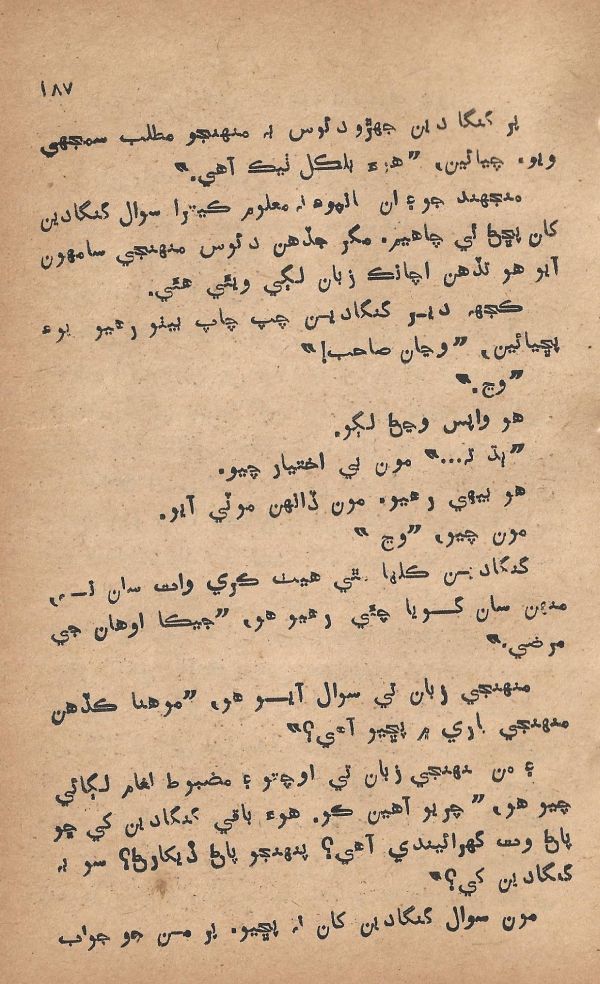 ۱۸۷
پر گنگا دين جهڙو دئوس به منهنجو مطلب سمجهي
ويو. چيائين، ”هيءَ بلڪل ٺيڪ آهي.“
منجهند جو ۽ ان انهوءَ نه معلوم ڪيترا سوال گنگادين
کان پڇڻ ٿي چاهيم. مگر جڏهن دئوس منهنجي سامهون
آيو هو تڏهن اچانڪ زبان لڳي ويئي هئي.
ڪجهه دير گنگادين چپ چاپ بيٺو رهيو پوءِ
پڇيائين، ”وڃان صاحب!“
”وڃ.“
هو واپس وڃڻ لڳو.
”ٻڌ ته...“ مون بي اختيار چيو.
هو بيهي رهيو. مون ڏانهن موٽي آيو.
مون چيو، ”وڃ “
گنگادين ڪلها هيٺ ڪري وات سان
سان گويا چئي رهيو هو، ”جيڪا اوهان جي
مرضي.“
منهنجي زبان تي سوال آيو هو، ”موهنا ڪڏهن
منهنجي باري ۾ پڇيو آهي؟“
۽ من منهنجي زبان تي اوچتو ۽ مضبوط لغام لڳائي
چيو هو، ”چريو آهين ڪو. هوءَ باقي گنگادين کي ڇو
پاڻ وٽ گهرائيندي آهي؟ پنهنجو پاڻ ڏيکارڻ؟ سو به
گنگادين کي؟“
مون سوال گنگادين کان نه پڇيو. پر من جو جواب